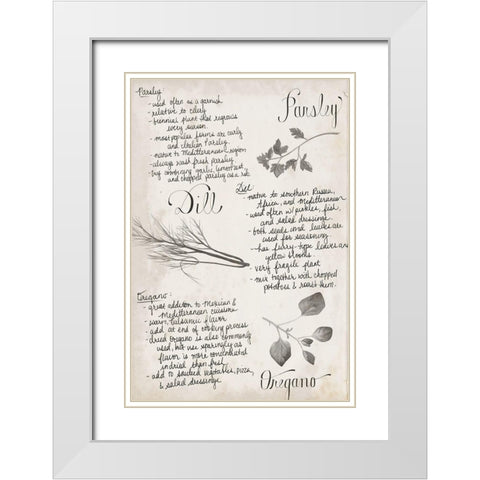 Parsley:
- used often as a garnish
- relative to celery
- biennial plant that regrows
every season.
- most popular forms are curly
and Italian Parsley.
- native to Mediterranean region
- always wash fresh parsley
- try combining garlic, lemon zest,
and chopped parsley as a rub.
Parsley
Dill
Dill
- native to southern Russia,
Africa, and Mediterranean
- used often w/ pickles, fish,
and salad dressings.
- both seeds and leaves are
used for seasoning
- has leaves and
yellow blooms.
- very fragile plant
- mix together with chopped
potatoes & roast them.
Oregano:
- great addition to Mexican &
Mediterranean cuisine
- warm, balsamic flavor
- add at end of cooking process
- dried oregano is also commonly
used, but use sparingly as
flavor is more concentrated
in dried than fresh.
- add to sauteed vegetables, pizza,
& salad dressings.
Oregano